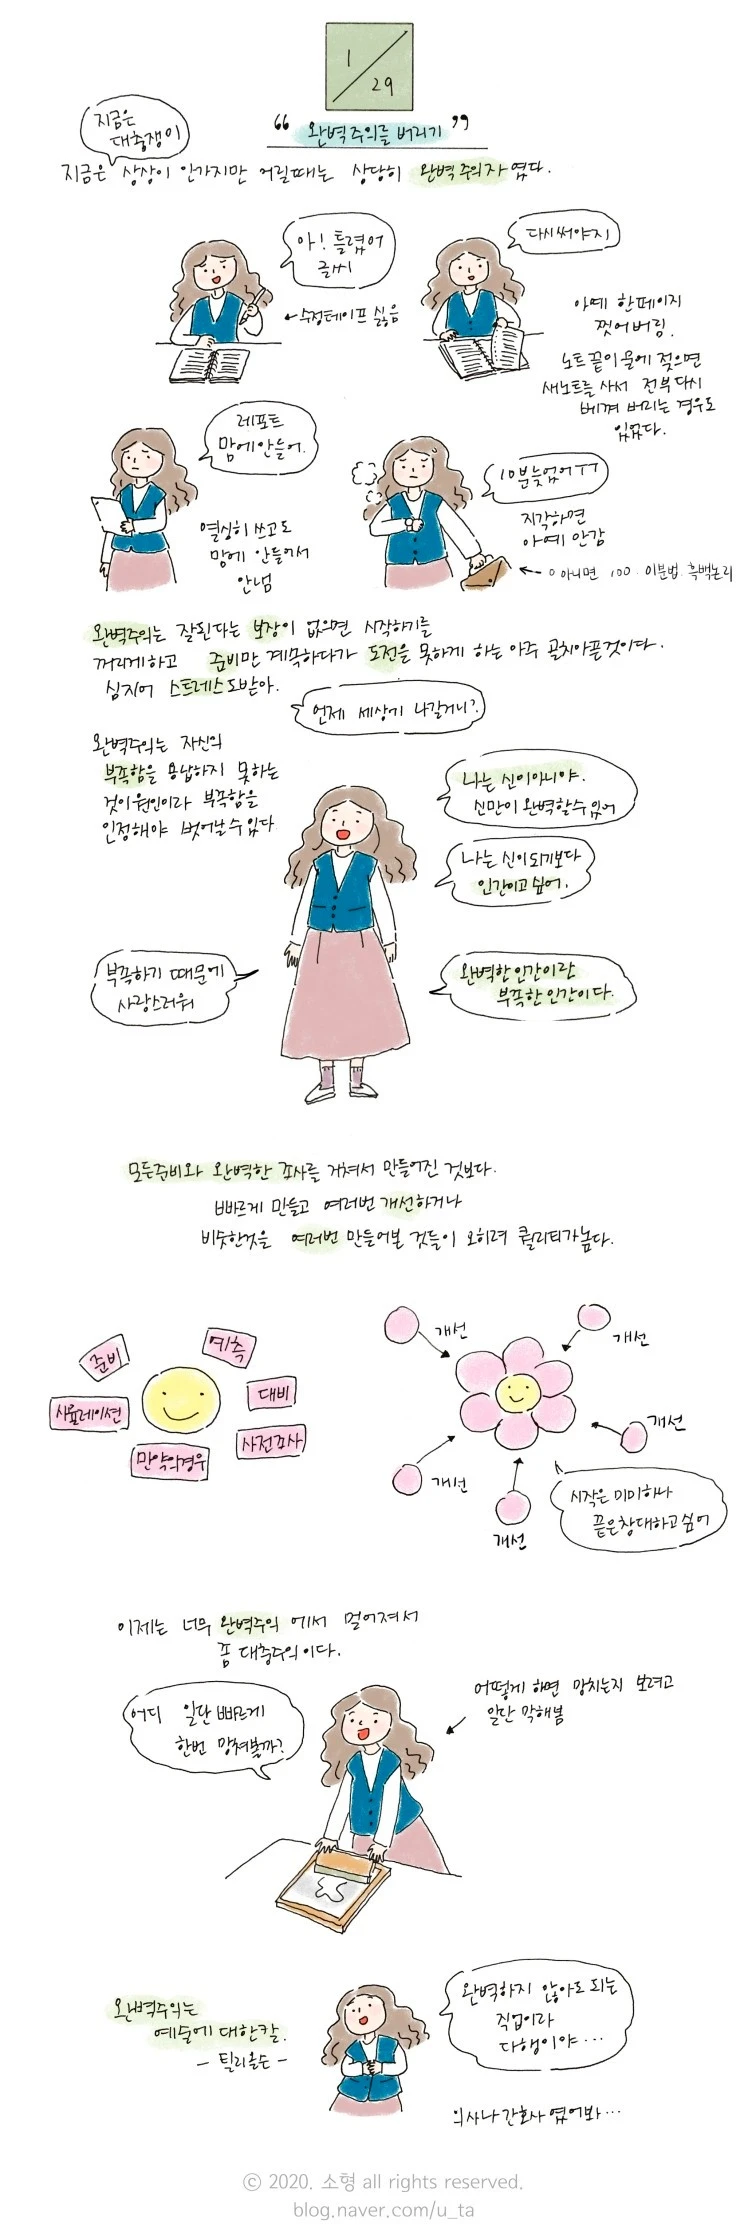 1/29
지금은
대충쟁이
“ 완벽주의를 버리기 ”
지금은 상상이 안가지만 어릴때는 상당히 완벽주의자 였다.
아! 틀렸어
글씨
수정테이프 싫음
다시써야지
아예 한페이지
찢어버림.
노트 끝이 물에 젖으면
새노트를 사서 전부 다시
베껴 버리는 경우도
있었다.
레포트
맘에안들어.
열심히 쓰고도
맘에 안들어서
안냄
10분늦었어ㅜㅜ
지각하면
아예 안감
0 아니면 100. 이분법. 흑백논리
완벽주의는 잘된다는 보장이 없으면 시작하기를
꺼리게하고 준비만 계속하다가 도전을 못하게 하는 아주 골치아픈것이다.
심지어 스트레스도받아.
언제 세상에 나갈거니?
완벽주의는 자신의
부족함을 용납하지 못하는
것이 원인이라 부족함을
인정해야 벗어날수있다
나는 신이아니야.
신만이 완벽할수있어
나는 신이되기보다
인간이고싶어.
부족하기 때문에
사랑스러워
완벽한인간이란
부족한인간이다.
모든준비와 완벽한 조사를 거쳐서 만들어진 것보다.
빠르게 만들고 여러번 개선하거나
비슷한것을 여러번 만들어본 것들이 오히려 퀄리티가높다.
준비
예측
시뮬레이션
대비
만약의경우
사전조사
개선
개선
개선
개선
개선
시작은 미미하나
끝은창대하고싶어
이제는 너무 완벽주의 에서 멀어져서
좀 대충주의이다.
어디 일단 빠르게
한번 망쳐볼까?
어떻게 하면 망치는지 보려고
일단 막해봄
완벽주의는
예술에 대한칼.
- 틸리올슨 -
완벽하지 않아도 되는
직업이라
다행이야...
의사나 간호사 였어봐...
© 2020. 소형 all rights reserved.
blog.naver.com/u_ta